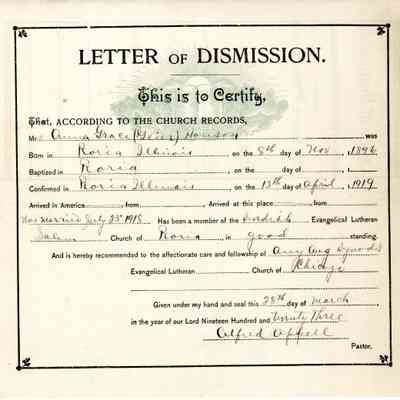 LETTER OF DISMISSION.
This is to Certify,
That, ACCORDING TO THE CHURCH RECORDS,
Mr Anna Grace was
Born in Illinois on the 8th day of Nov , 1896
Baptized in on the day of , 
Confirmed in Illinois on the 13th day of April , 1919
Arrived in America from Arrived at this place from
Was Married July 23rd 1918 Has been a member of the Swedish Evangelical Lutheran
Salem Church of in good standing.
And is hereby recommended to the affectionate care and fellowship of any Aug Synod's
Evangelical Lutheran Church of Chicago
Given under my hand and seal this 28th day of March
in the year of our Lord Nineteen Hundred and Twenty Three
Alfred Appell
Pastor.